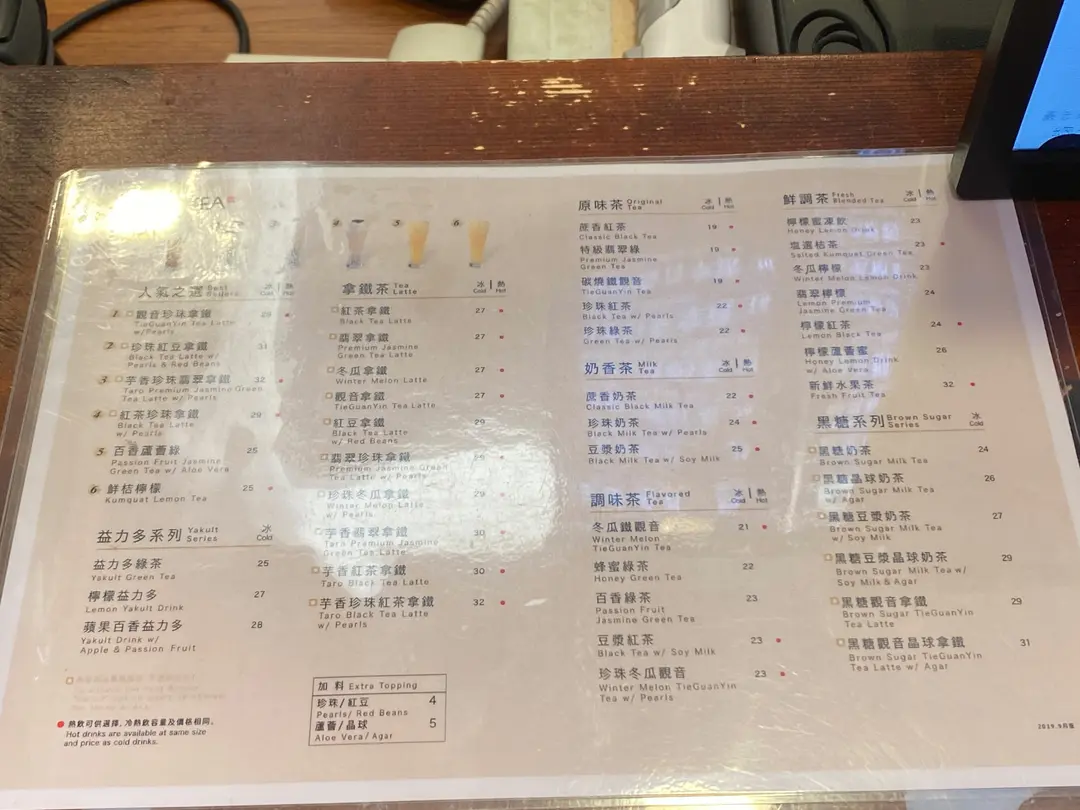 4 5 6
人氣之選 Best
冰 Cold | 熱 Hot
1 觀音珍珠拿鐵
TieGuanYin Tea Latte
w/Pearls
2 珍珠紅豆拿鐵 31
Black Tea Latte w/
Pearls & Red Beans
3 芋香珍珠翡翠拿鐵 32
Taro Premium Jasmine Green
Tea Latte w/ Pearls
4 紅茶珍珠拿鐵 29
Black Tea Latte
w/ Pearls
5 百香蘆薈綠 25
Passion Fruit Jasmine
Green Tea w/ Aloe Vera
6 鮮桔檸檬 25
Kumquat Lemon Tea
益力多系列 Yakult Series 冰 Cold
益力多綠茶 25
Yakult Green Tea
檸檬益力多 27
Lemon Yakult Drink
蘋果百香益力多 28
Yakult Drink w/
Apple & Passion Fruit
熱飲可供選擇，冷熱飲容量及價格相同。
Hot drinks are available at same size
and price as cold drinks.
拿鐵茶 Tea Latte 冰 Cold | 熱 Hot
紅茶拿鐵 27
Black Tea Latte
翡翠拿鐵 27
Premium Jasmine
Green Tea Latte
冬瓜拿鐵 27
Winter Melon Latte
觀音拿鐵 27
TieGuanYin Tea Latte
紅豆拿鐵 29
Black Tea Latte
w/ Red Beans
翡翠珍珠拿鐵
Premium Jasmine Green
Tea Latte w/ Pearls
珍珠冬瓜拿鐵 29
Winter Melon Latte
w/ Pearls
芋香翡翠拿鐵 30
Taro Premium Jasmine
Green Tea Latte
芋香紅茶拿鐵 30
Taro Black Tea Latte
芋香珍珠紅茶拿鐵 32
Taro Black Tea Latte
w/ Pearls
加料 Extra Topping
珍珠/紅豆 4
Pearls/ Red Beans
蘆薈/晶球 5
Aloe Vera/Agar
原味茶 Original Tea 冰 Cold | 熱 Hot
蔗香紅茶 19
Classic Black Tea
特級翡翠綠 19
Premium Jasmine
Green Tea
碳燒鐵觀音 19
TieGuanYin Tea
珍珠紅茶 22
Black Tea w/ Pearls
珍珠綠茶 22
Green Tea w/ Pearls
奶香茶 Milk Tea 冰 Cold | 熱 Hot
蔗香奶茶 22
Classic Black Milk Tea
珍珠奶茶 24
Black Milk Tea w/ Pearls
豆漿奶茶 25
Black Milk Tea w/ Soy Milk
調味茶 Flavored Tea 冰 Cold | 熱 Hot
冬瓜鐵觀音 21
Winter Melon
TieGuanYin Tea
蜂蜜綠茶 22
Honey Green Tea
百香綠茶 23
Passion Fruit
Jasmine Green Tea
豆漿紅茶 23
Black Tea w/ Soy Milk
珍珠冬瓜觀音 23
Winter Melon TieGuanYin
Tea w/ Pearls
鮮調茶 Fresh Blended Tea 冰 Cold | 熱 Hot
檸檬蜜凍飲 23
Honey Lemon Drink
塩選桔茶 23
Salted Kumquat Green Tea
冬瓜檸檬 23
Winter Melon Lemon Drink
翡翠檸檬 24
Lemon Premium
Jasmine Green Tea
檸檬紅茶 24
Lemon Black Tea
檸檬蘆薈蜜 26
Honey Lemon Drink
w/ Aloe Vera
新鮮水果茶 32
Fresh Fruit Tea
黑糖系列 Brown Sugar Series 冰 Cold
黑糖奶茶 24
Brown Sugar Milk Tea
黑糖晶球奶茶 26
Brown Sugar Milk Tea
w/ Agar
黑糖豆漿奶茶 27
Brown Sugar Milk Tea
w/ Soy Milk
黑糖豆漿晶球奶茶 29
Brown Sugar Milk Tea w/
Soy Milk & Agar
黑糖觀音拿鐵 29
Brown Sugar TieGuanYin
Tea Latte
黑糖觀音晶球拿鐵 31
Brown Sugar TieGuanYin
Tea Latte w/ Agar
2019.9月版